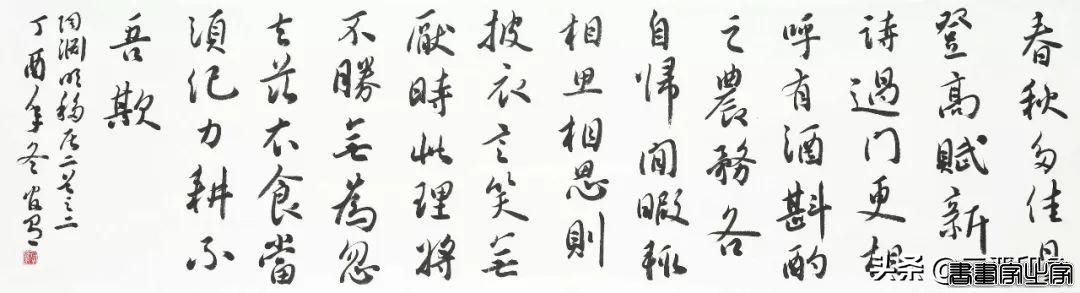 春秋多佳日
登高賦新
詩過門更相
呼有酒斟酌
之農務各
自歸閒暇輒
相思相思則
披衣言笑無
厭時此理將
不勝無為忽
去茲衣食當
須紀力耕不
吾欺
陶淵明移居二首之二
丁酉年冬
头条 @